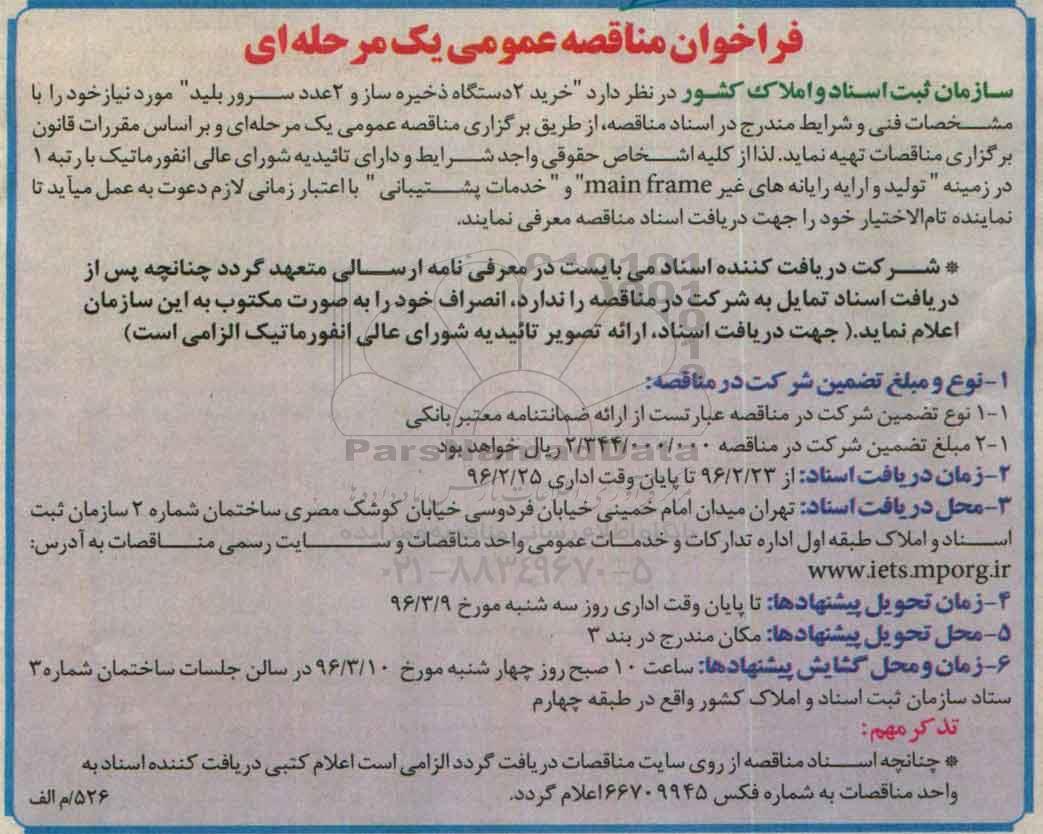 فراخوان مناقصه عمومی یک مرحله ای
سازمان ثبت اسناد و املاک کشور در نظر دارد "خرید ۲دستگاه ذخیره ساز و ۲عدد سرور بلید" مورد نیازخود را با
مشخصات فنی و شرایط مندرج در اسناد مناقصه، از طریق برگزاری مناقصه عمومی یک مرحله‌ای و بر اساس مقررات قانون
برگزاری مناقصات تهیه نماید. لذا از کلیه اشخاص حقوقی واجد شرایط و دارای تائیدیه شورای عالی انفورماتیک با رتبه ۱
در زمینه " تولید و ارایه رایانه های غیر main frame" و " خدمات پشتیبانی " با اعتبار زمانی لازم دعوت به عمل میآید تا
نماینده تام‌الاختیار خود را جهت دریافت اسناد مناقصه معرفی نمایند.
* شرکت دریافت کننده اسناد می بایست در معرفی نامه ارسالی متعهد گردد چنانچه پس از
دریافت اسناد تمایل به شرکت در مناقصه را ندارد، انصراف خود را به صورت مکتوب به این سازمان
اعلام نماید.( جهت دریافت اسناد، ارائه تصویر تائیدیه شورای عالی انفورماتیک الزامی است)
۱-نوع و مبلغ تضمین شرکت در مناقصه:
۱-۱ نوع تضمین شرکت در مناقصه عبارتست از ارائه ضمانتنامه معتبر بانکی
۲-۱ مبلغ تضمین شرکت در مناقصه ۲/۳۴۴/۰۰۰/۰۰۰ ریال خواهد بود
ParsNamadData
۲-زمان دریافت اسناد: از ۹۶/۲/۲۳ تا پایان وقت اداری ۹۶/۲/۲۵
۳-محل دریافت اسناد: تهران میدان امام خمینی خیابان فردوسی خیابان کوشک مصری ساختمان شماره ۲ سازمان ثبت
اسناد و املاک طبقه اول اداره تدارکات و خدمات عمومی واحد مناقصات و سایت رسمی مناقصات به آدرس:
www.iets.mporg.ir
۰۲۱-۸۸۳۴۹۶۷۰-۵
۴-زمان تحویل پیشنهادها: تا پایان وقت اداری روز سه شنبه مورخ ۹۶/۳/۹
۵-محل تحویل پیشنهادها: مکان مندرج در بند ۳
۶-زمان و محل گشایش پیشنهادها: ساعت ۱۰ صبح روز چهار شنبه مورخ ۹۶/۳/۱۰ در سالن جلسات ساختمان شماره ۳
ستاد سازمان ثبت اسناد و املاک کشور واقع در طبقه چهارم
تذکر مهم:
* چنانچه اسناد مناقصه از روی سایت مناقصات دریافت گردد الزامی است اعلام کتبی دریافت کننده اسناد به
واحد مناقصات به شماره فکس ۶۶۷۰۹۹۴۵ اعلام گردد.
۵۲۶/م الف